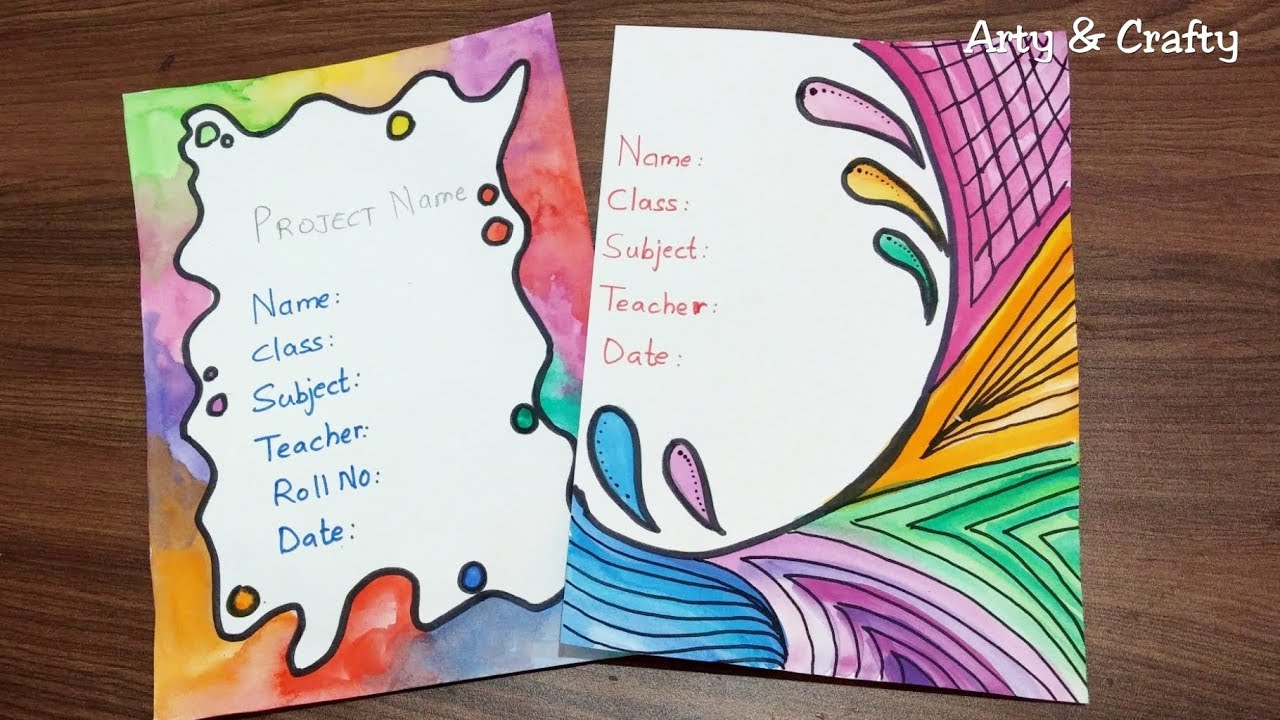 Arty & Crafty
PROJECT Name
Name:
Class:
Subject:
Teacher:
Roll No:
Date:
Name:
Class:
Subject:
Teacher:
Date: